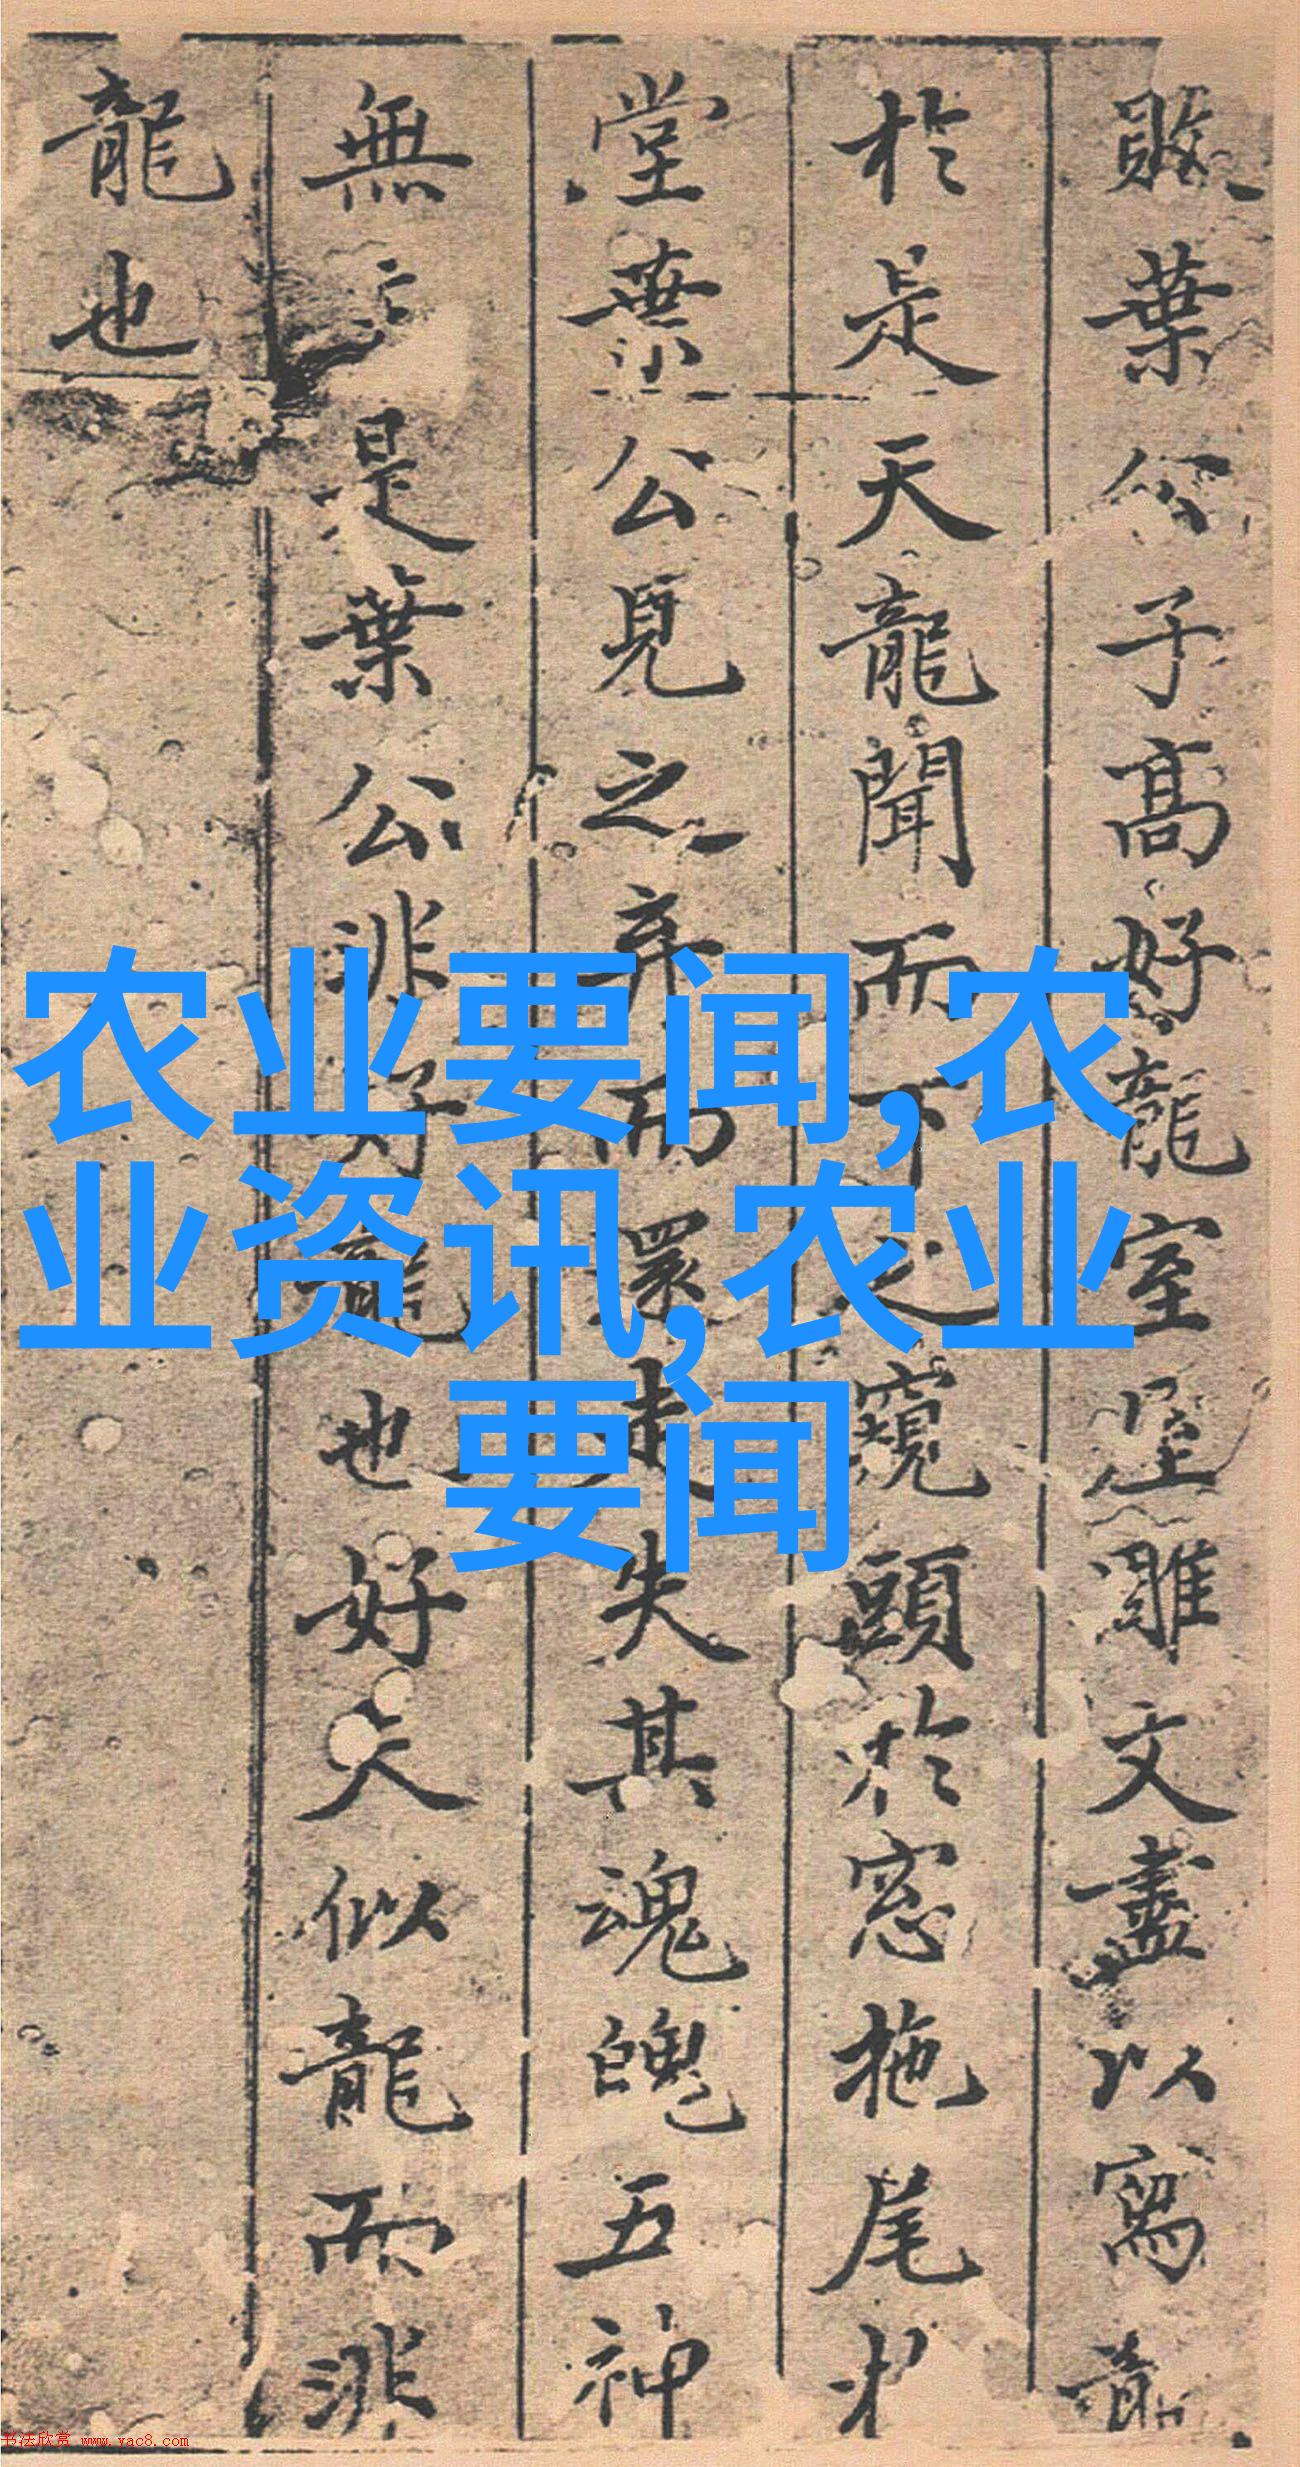 叶公子高好龍室屋雕文盡以寫龍
於是天龍聞而下之窺頭於窓拖尾
堂葉公見之弃而還走失其魂魄五神
無主是葉公非好龍也好夫似龍而非
龍也
农业要闻,农
业资讯,农业
要闻
书法欣赏 www.yac8.com